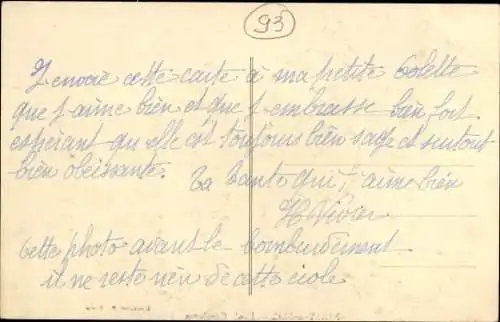 93
J'envoie cette carte à ma petite Colette
que j'aime bien et que j'embrasse bien fort
espérant qu'elle est toujours bien sage et surtout
bien obeissante. Ta tante qui t'aime bien
H
Cette photo avant le bombardement
il ne reste rien de cette école